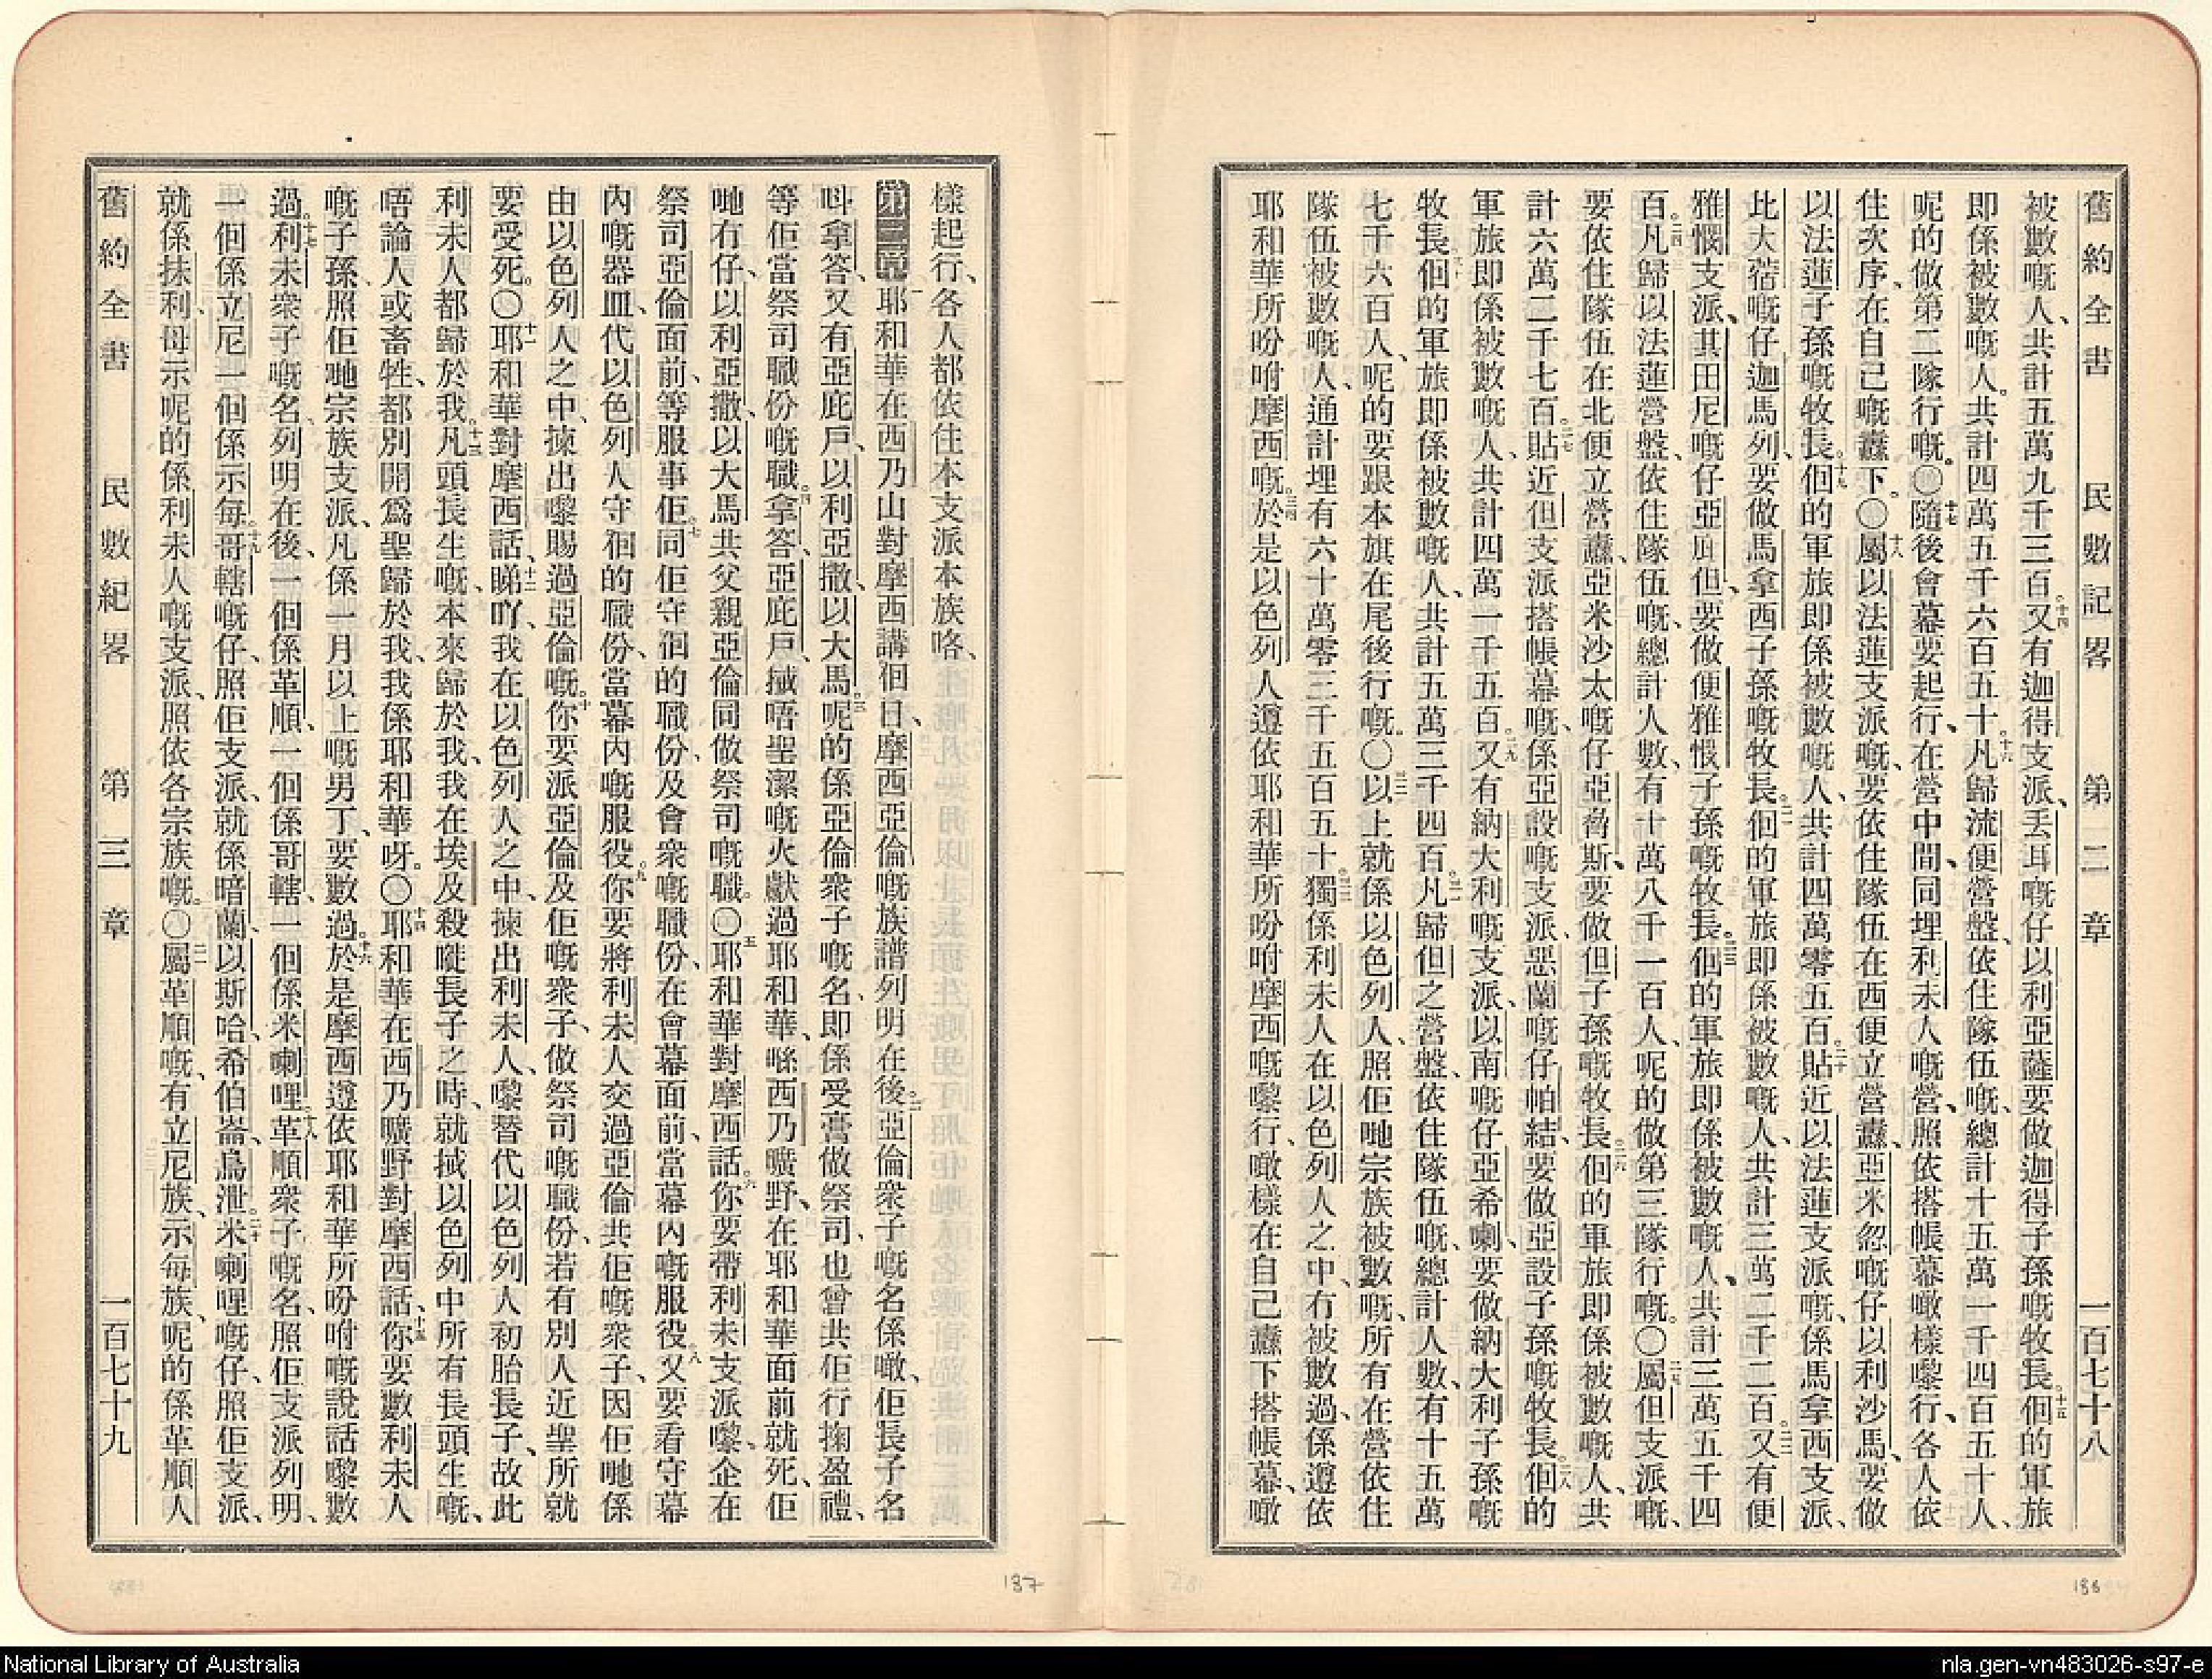 舊約全書 民數記畧 第二章 一百七十八
被數嘅人、共計五萬九千三百。十四又有迦得支派、丟耳嘅仔以利亞薩要做迦得子孫嘅牧長。十五佢的軍旅
即係被數嘅人。共計四萬五千六百五十。十六凡歸流便營盤、依住隊伍嘅、總計十五萬一千四百五十人、
呢的做第二隊行嘅。〇十七隨後會幕要起行、在營中間、同埋利未人嘅營、照依搭帳幕噉樣嚟行、各人依
住次序、在自己嘅纛下。〇十八屬以法蓮支派嘅、要依住隊伍在西便立營纛、亞米忽嘅仔以利沙馬、要做
以法蓮子孫嘅牧長。十九佢的軍旅即係被數嘅人、共計四萬零五百。二十貼近以法蓮支派嘅、係馬拿西支派、
比大蓿嘅仔迦馬列、要做馬拿西子孫嘅牧長。二一佢的軍旅即係被數嘅人、共計三萬二千二百。二二又有便
雅憫支派、其田尼嘅仔亞庇但、要做便雅憫子孫嘅牧長。二三佢的軍旅即係被數嘅人、共計三萬五千四
百。二四凡歸以法蓮營盤、依住隊伍嘅、總計人數、有十萬八千一百人、呢的做第三隊行嘅。〇二五屬但支派嘅、
要依住隊伍在北便立營纛、亞米沙太嘅仔亞希斯、要做但子孫嘅牧長。二六佢的軍旅即係被數嘅人、共
計六萬二千七百。二七貼近但支派搭帳幕嘅、係亞設嘅支派、惡蘭嘅仔帕結、要做亞設子孫嘅牧長。二八佢的
軍旅即係被數嘅人、共計四萬一千五百。二九又有納大利嘅支派、以南嘅仔亞希喇、要做納大利子孫嘅
牧長。三十佢的軍旅即係被數嘅人、共計五萬三千四百。三一凡歸但之營盤、依住隊伍嘅、總計人數、有十五萬
七千六百人、呢的要跟本旗在尾後行嘅。〇三二以上就係以色列人、照佢哋宗族被數嘅、所有在營依住
隊伍被數嘅人、通計埋有六十萬零三千五百五十。三三獨係利未人在以色列人之中、冇被數過、係遵依
耶和華所吩咐摩西嘅。三四於是以色列人遵依耶和華所吩咐摩西嘅嚟行、噉樣在自己纛下搭帳幕、噉
樣起行、各人都依住本支派本族咯、
第三章一耶和華在西乃山對摩西講佢日、摩西亞倫嘅族譜列明在後。二亞倫衆子嘅名係噉、佢長子名
呌拿答、又有亞庇戶、以利亞撒、以大馬。三呢的係亞倫衆子嘅名、即係受膏做祭司、也曾共佢行掬盈禮、
等佢當祭司職份嘅職。四拿答、亞庇戶、搣唔聖潔嘅火獻過耶和華、喺西乃曠野、在耶和華面前就死、佢
哋冇仔、以利亞撒、以大馬共父親亞倫同做祭司嘅職。〇五耶和華對摩西話。六你要帶利未支派嚟、企在
祭司亞倫面前、等服事佢。七同佢守佢的職份、及會衆嘅職份、在會幕面前、當幕內嘅服役。八又要看守幕
內嘅器皿、代以色列人守佢的職份、當幕內嘅服役。九你要將利未人交過亞倫共佢嘅衆子、因佢哋係
由以色列人之中、揀出嚟賜過亞倫嘅。十你要派亞倫及佢嘅衆子、做祭司嘅職份、若有別人近聖所就
要受死。〇十一耶和華對摩西話、十二睇吖、我在以色列人之中、揀出利未人、嚟替代以色列人初胎長子、故此
利未人都歸於我。十三凡頭長生嘅、本來歸於我、我在埃及殺嘥長子之時、就搣以色列中所有長頭生嘅、
唔論人或畜牲、都別開爲聖歸於我、我係耶和華呀。〇十四耶和華在西乃曠野對摩西話、十五你要數利未人
嘅子孫、照佢哋宗族支派、凡係一月以上嘅男丁、要數過。十六於是摩西遵依耶和華所吩咐嘅說話嚟數
過。十七利未衆子嘅名、列明在後、一個係革順、一個係哥轄、一個係米喇哩。十八革順衆子嘅名、照佢支派列明、
一個係立尼、一個係示每。十九哥轄嘅仔、照佢支派、就係暗蘭、以斯哈、希伯崙、烏泄。二十米喇哩嘅仔、照佢支派、
就係抹利、母示、呢的係利未人嘅支派、照依各宗族嘅。〇二一屬革順嘅、有立尼族、示每族、呢的係革順人
舊約全書 民數紀畧 第三章 一百七十九
187
186
National Library of Australia
nla.gen-vn483026-s97-e